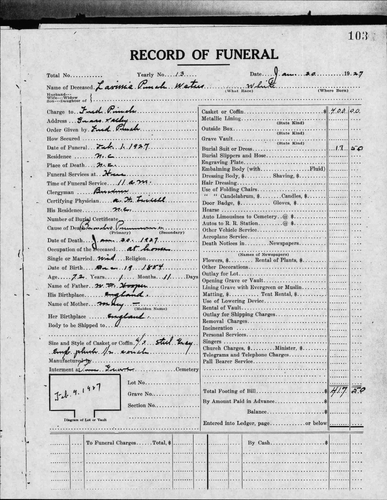 103
RECORD OF FUNERAL
Total No. Yearly No. 13 Date Jan 30 1927
Name of Deceased Lavinia Punch Waters White
Husband—Wife—Widow Son—Daughter of (What Race) (Where Born)
Charge to Fred Punch
Address Grass Valley
Order Given by Fred Punch
How Secured
Date of Funeral Feb. 1, 1927
Residence N.C.
Place of Death N.C.
Funeral Services at
Time of Service 11 a.m.
Clergyman
Certifying Physician
His Residence N.C.
Number of Burial Certificate
Cause of Death Broncho Pneumonia
(Primary) (Secondary)
Date of Death Jan 30. 1927
Occupation of the Deceased At home
Single or Married Wid Religion
Date of Birth Dec 19 1854
Age 72 Years 1 Months 11 Days
Name of Father W. W. Hooper
His Birthplace England
Name of Mother Mary
(Maiden Name)
Her Birthplace England
Body to be Shipped to
Size and Style of Casket or Coffin
Manufactured by
Interment Cemetery
Feb. 9. 1927
Diagram of Lot or Vault
Lot No.
Grave No.
Section No.
Casket or Coffin $ 400 00
Metallic Lining
(State Kind)
Outside Box
(State Kind)
Grave Vault
(State Kind)
Burial Suit or Dress 17 50
Burial Slippers and Hose
Engraving Plate
Embalming Body (with Fluid)
Dressing Body, $ Shaving, $
Hair Dressing
Use of Folding Chairs
" " Candelabrum, $ Candles, $
Door Badge, $ Gloves, $
Hearse
Auto Limousines to Cemetery @ $
Autos to R. R. Station @ $
Other Vehicle Service
Aeroplane Service
Death Notices in Newspapers
(Names of Newspapers)
Flowers, $ Rental of Plants, $
Other Decorations
Outlay for Lot
Opening Grave or Vault
Lining Grave with Evergreen or Muslin
Matting, $ Tent Rental, $
Use of Lowering Device
Rental of Vault
Outlay for Shipping Charges
Removal Charges
Incineration
Personal Services
Singers
Church Charges, $ Minister, $
Telegrams and Telephone Charges
Pall Bearer Service
Total Footing of Bill $ 417 50
By Amount Paid in Advance
Balance $
Entered into Ledger, page or below
To Funeral Charges Total, $
By Cash $